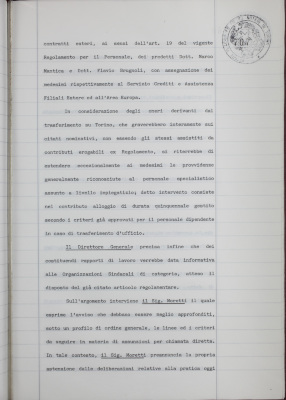 contratti esteri, ai sensi dell'art. 19 del vigente
Regolamento per il Personale, dei predetti Dott. Marco
e Dott. Flavio con assegnazione dei
medesimi rispettivamente al Servizio Crediti e Assistenza
Filiali Estere ed all'Area Europa.
In considerazione degli oneri derivanti dal
trasferimento su Torino, che graverebbero interamente sui
citati nominativi, non essendo gli stessi assistiti da
contributi erogabili ex Regolamento, si riterrebbe di
estendere eccezionalmente ai medesimi le provvidenze
generalmente riconosciute al personale specialistico
assunto a livello impiegatizio; detto intervento consiste
nel contributo alloggio di durata quinquennale gestito
secondo i criteri già approvati per il personale dipendente
in caso di trasferimento d'ufficio.
Il Direttore Generale precisa infine che dei
costituendi rapporti di lavoro verrebbe data informativa
alle Organizzazioni Sindacali di categoria, atteso il
disposto del più citato articolo regolamentare.
Sull'argomento interviene il Sig. Moretti il quale
esprime l'avviso che debbano essere meglio approfonditi,
sotto un profilo di ordine generale, le linee ed i criteri
da seguire in materia di assunzioni per chiamata diretta.
In tale contesto, il Sig. Moretti preannuncia la propria
astensione dalle deliberazioni relative alle pratiche oggi